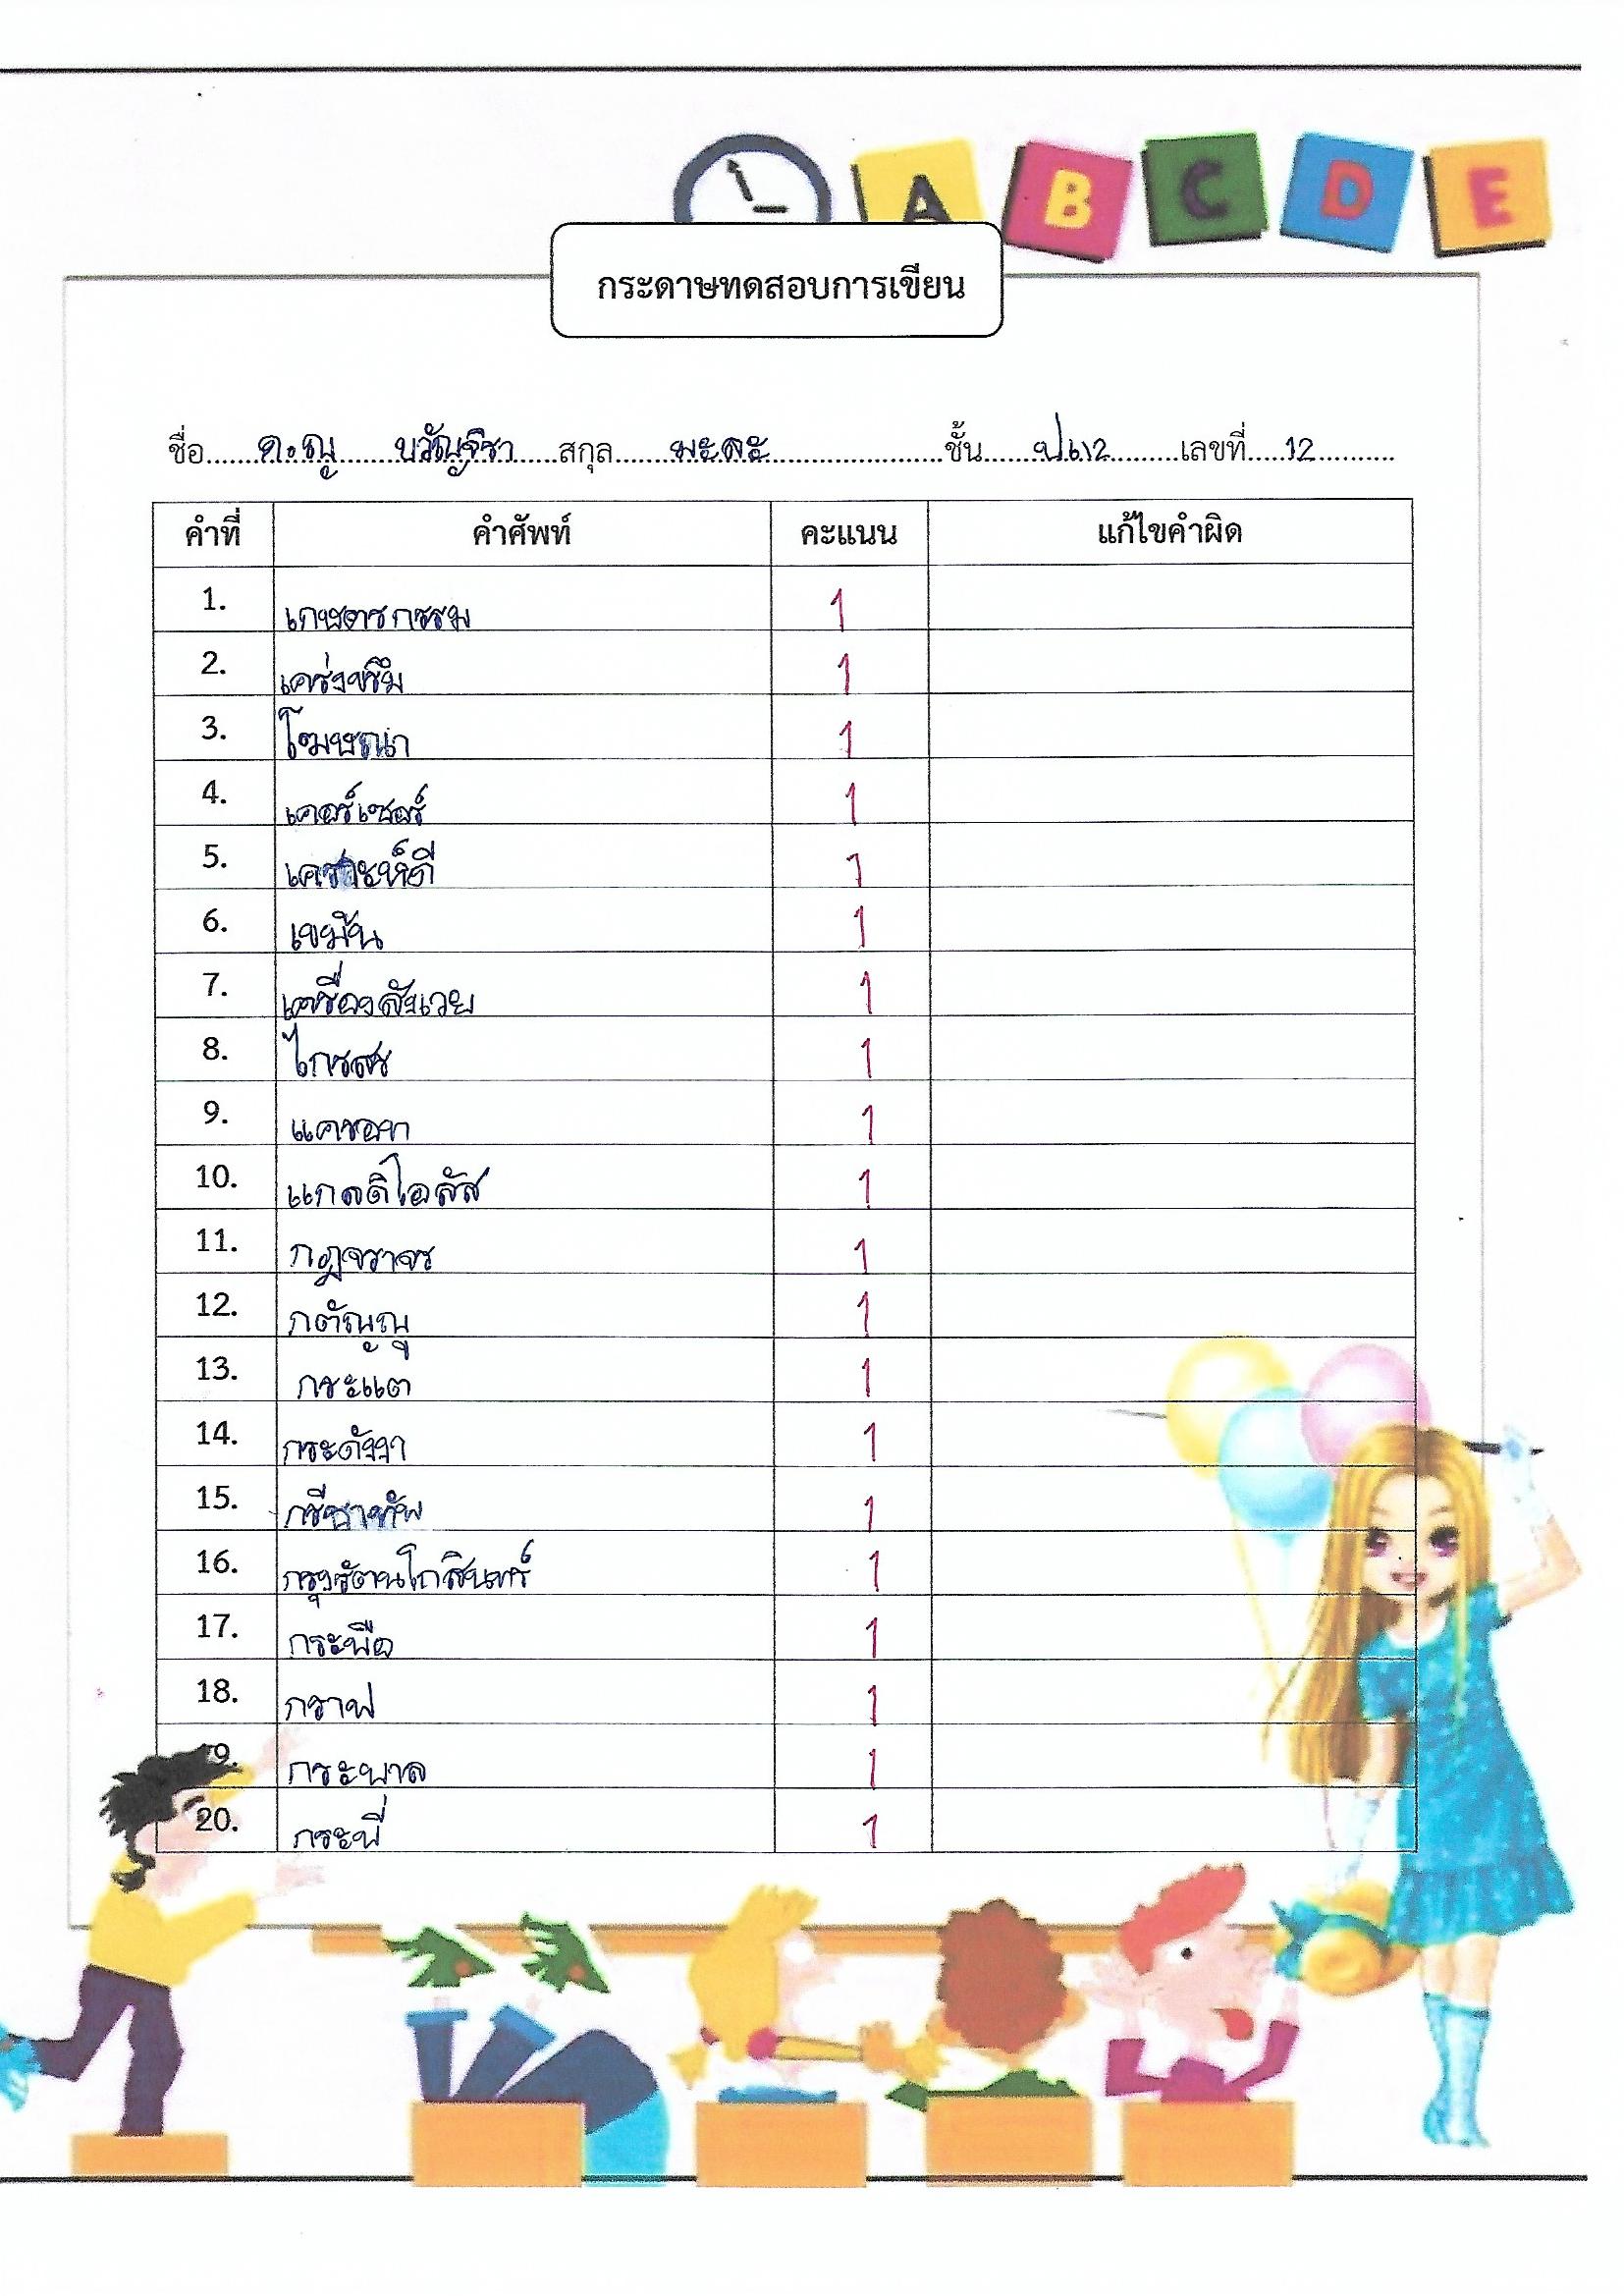 A B C D E
กระดาษทดสอบการเขียน
ชื่อ ด.ญ ขวัญจิรา สกุล มะละ ชั้น ป.1/2 เลขที่ 12
คำที่ คำศัพท์ คะแนน แก้ไขคำผิด
1. เกษตรกรรม 1
2. เคร่งขรึม 1
3. โฆษณา 1
4. เคอร์เซอร์ 1
5. เคราะห์ดี 1
6. เขม้น 1
7. เครื่องสังเวย 1
8. ไกรสร 1
9. แครอท 1
10. แกลดิโอลัส 1
11. กฎจราจร 1
12. กตัญญู 1
13. กระแต 1
14. กระดังงา 1
15. กรีฑาทัพ 1
16. กรุงรัตนโกสินทร์ 1
17. กระพือ 1
18. กราฟ 1
19. กระบาล 1
20. กระบี่ 1